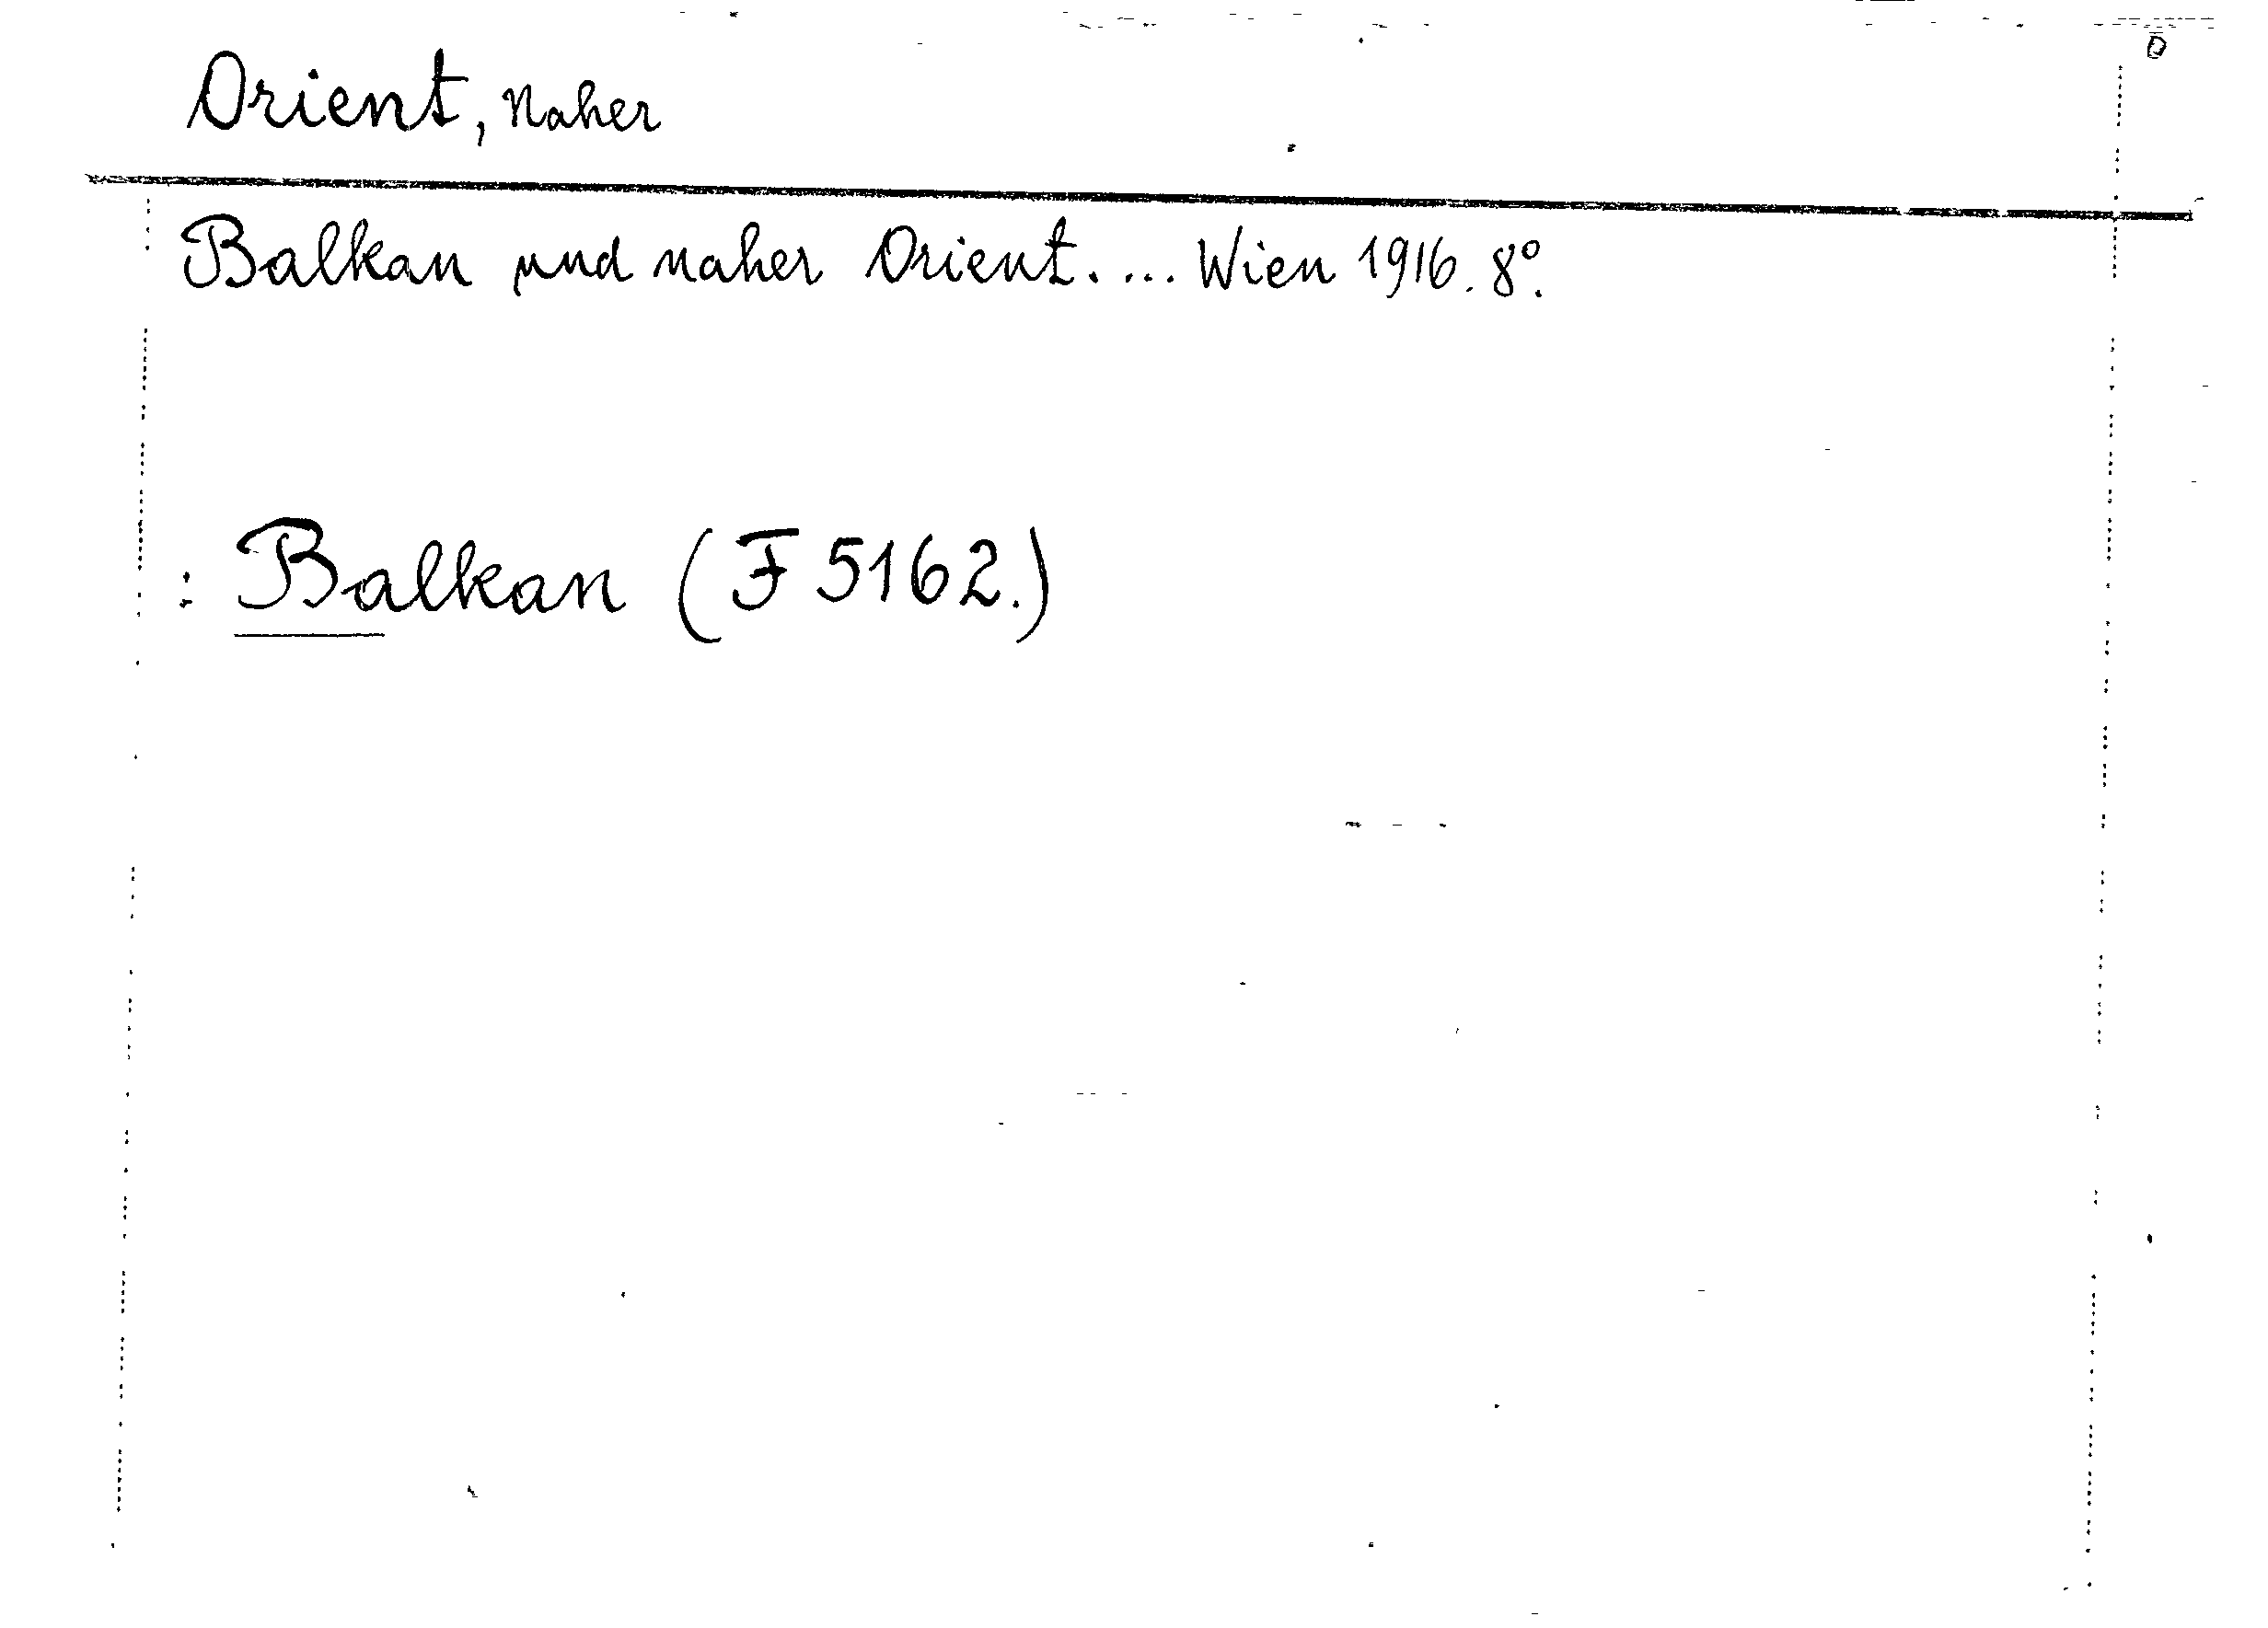 Orient, Naher
Balkan und naher Orient. ... Wien 1916. 8°.
: Balkan (F 5162.)